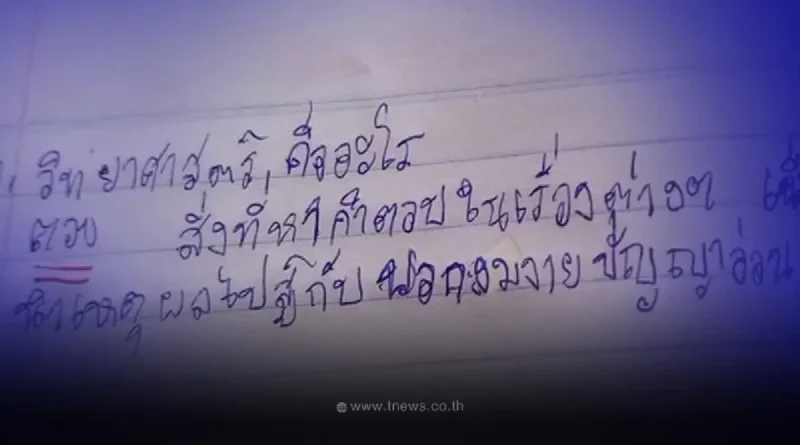 วิทยาศาสตร์ คืออะไร
ตอบ สิ่งที่หาคำตอบในเรื่องต่างๆ
นำเหตุผลไปสู้กับ พวกงมงาย ปัญญาอ่อน
www.tnews.co.th